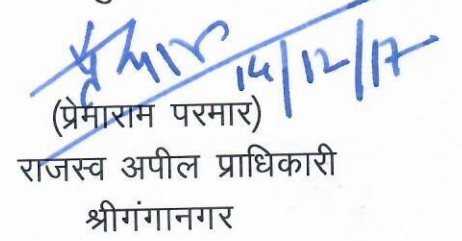 14/12/17
(प्रेमाराम परमार)
राजस्व अपील प्राधिकारी
श्रीगंगानगर